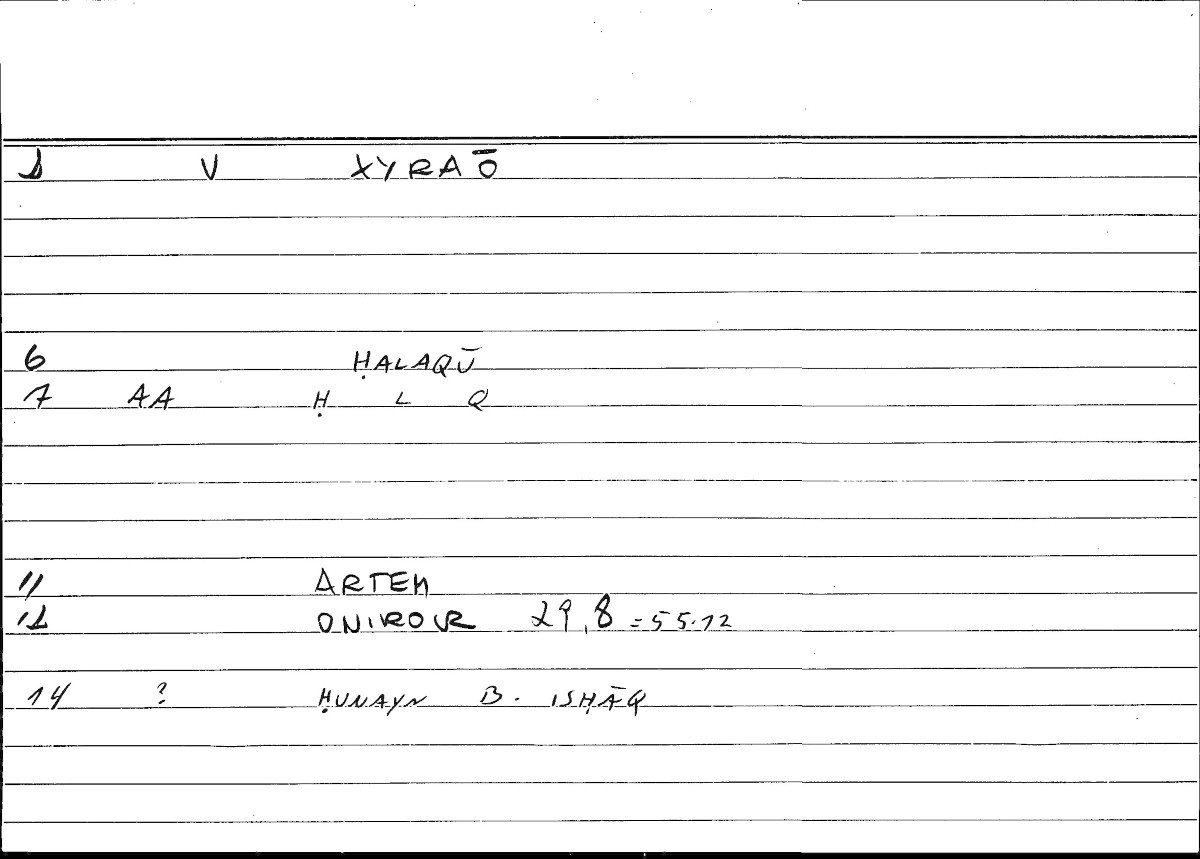 1 V XYRAŌ
6 ḤALAQŪ
7 AA Ḥ L Q
11 ARTEM
12 ONIROCR 29,8 = 55.12
14 ? ḤUNAYN B. ISḤĀQ